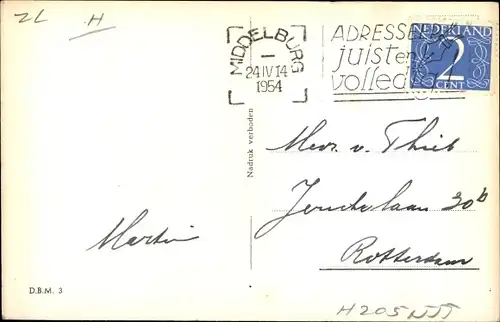 ZL H
MIDDELBURG
24 IV 14
1954
ADRESSEER
juist en
volledig
NEDERLAND
2
CENT
Nadruk verboden
Mevr. v. Thiel
30b
Rotterdam
Martin
D.B.M. 3
H205